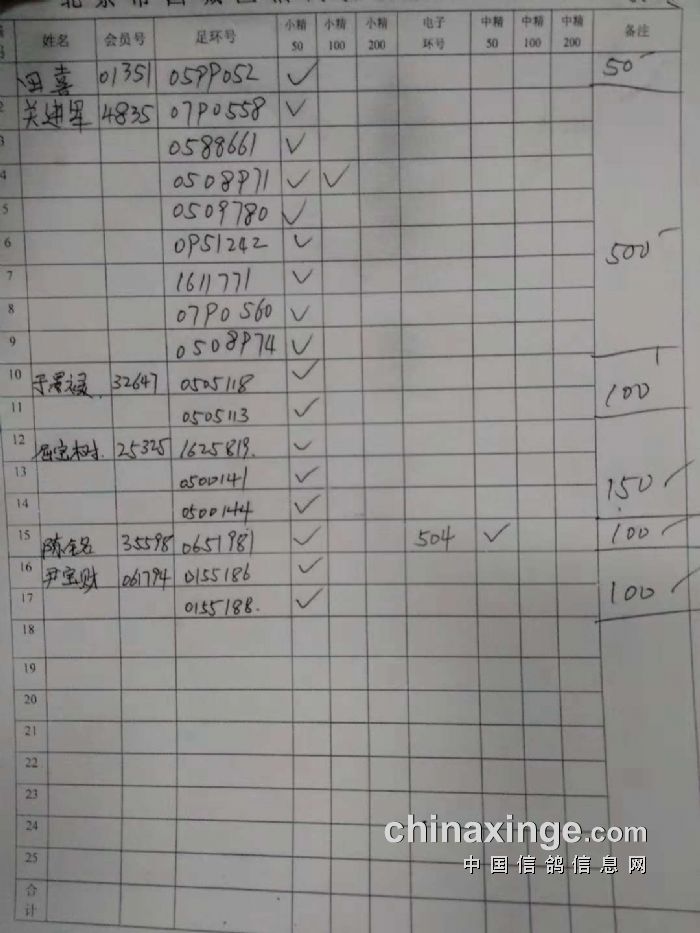 姓名 会员号 足环号 小精50 小精100 小精200 电子环号 中精50 中精100 中精200 备注
田喜 01351 0599052 ✓ 50-
2 关建军 4835 0790558 ✓
3 0588661 ✓
4 0508971 ✓ ✓
5 0509780 ✓
6 0951242 ✓ 500-
7 1611771 ✓
8 0790560 ✓
9 0508974 ✓
10 32647 0505118 ✓ 100
11 0505113 ✓
12 屈宝树 25325 1625819. ✓
13 0500141 ✓ 150-
14 0500144 ✓
15 陈全名 35598 0651981 ✓ 504 ✓ 100-
16 尹宝财 061794 0155186 ✓
17 0155188. ✓ 100-
18
19
20
21
22
23
24
25
合计
chinaxinge.com
中国信鸽信息网